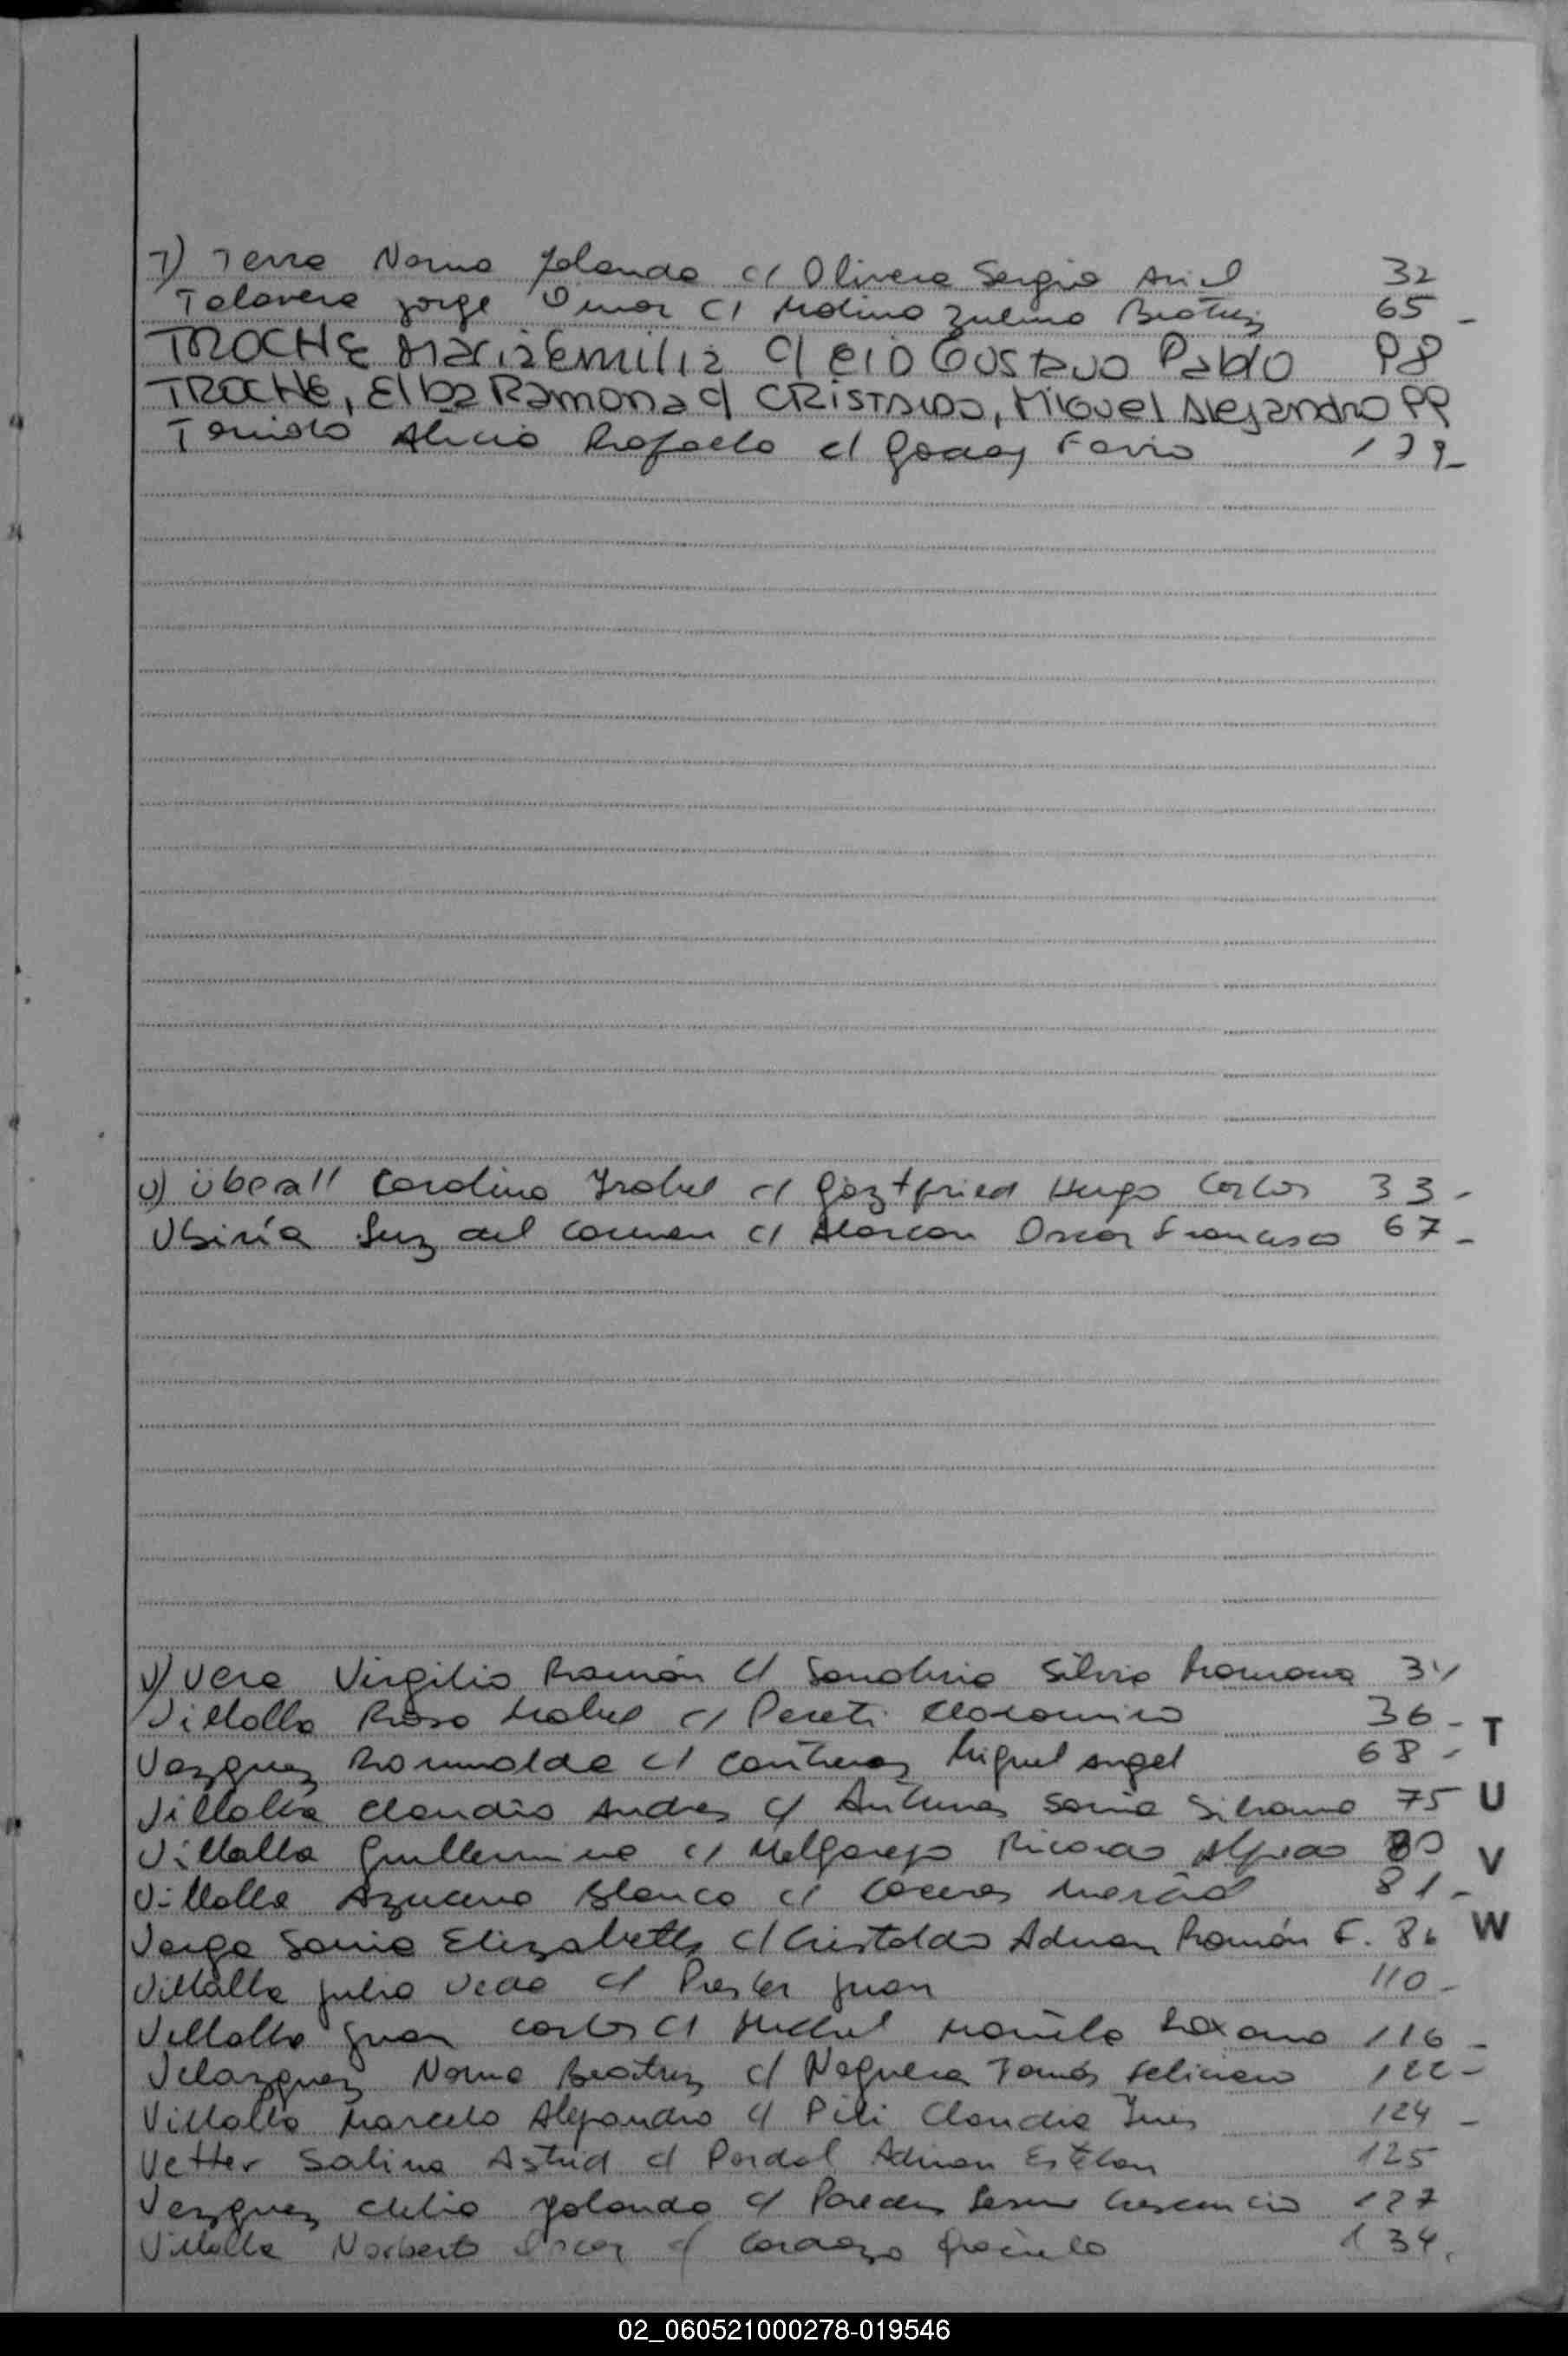 T) Terra Norma Yolanda c/ Olivera Sergio Ariel 32
Talavera Jorge Omar c/ Molina Zulma Beatriz 65 -
TROCHE María Emilia c/ CID Gustavo Pablo 98
TROCHE, Elba Ramona c/ CRISTALDO, Miguel Alejandro 99
Alicia Rafaela c/ Godoy Favio 139-
U) Überall Carolina Ysabel c/ Göztfried Hugo Carlos 33 -
Ubiría Luz del Carmen c/ Alarcon Oscar Francisco 67 -
V) Vera Virgilio Ramón c/ Sanabria Silvia Ramona 34
Villalba Rosa Isabel c/ Pereti Clodomiro 36 -
Vazquez Romualda c/ Contreras Miguel Angel 68 -
Villalba Claudio Andres c/ Antunes Sonia Silvana 75
Villalba Guillermina c/ Melgarejo Ricardo Alfredo 80
Villalba Azucena Blanca c/ Caceres 81 -
Verga Sonia Elizabeth c/ Cristaldo Adrian Ramón F. 86
Villalba Julia c/ Prester Juan 110 -
Villalba Juan Carlos c/ Michel Mariela Roxana 116 -
Velazquez Norma Beatriz c/ Noguera Tomás Feliciano 122 -
Villalba Marcelo Alejandro c/ Pili Claudia Ines 124 -
Vetter Salina Astrid c/ Pardal Adrian Esteban 125
Vazquez Clelia Yolanda c/ Paredes Crescencio 127
Villalba Norberto Oscar c/ Cardozo Graciela 134.
T
U
V
W
02_060521000278-019546